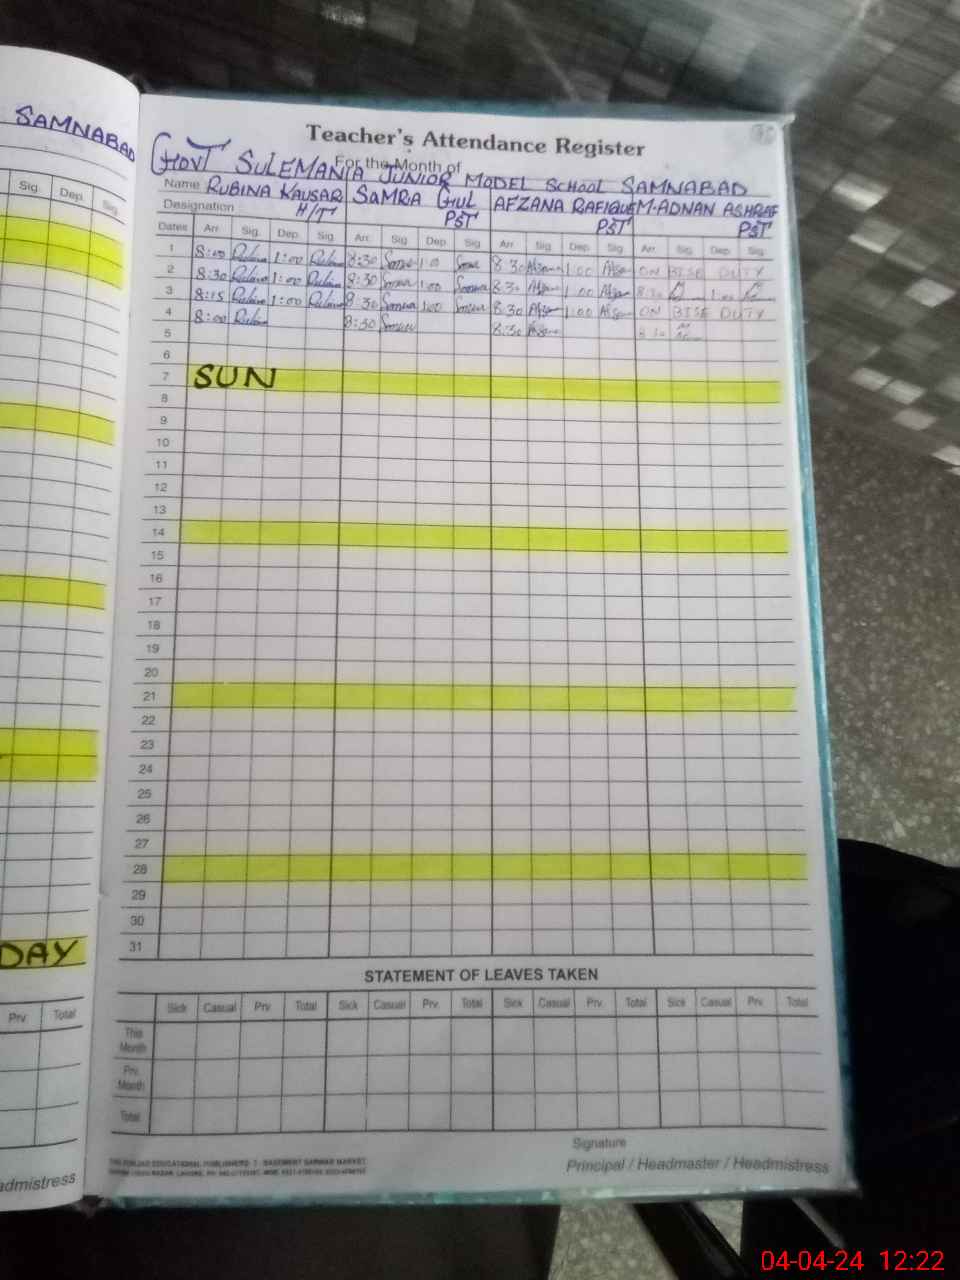 SAMNABAD
Sig. Dep. Sig.
DAY
Prv. Total
admistress
Teacher's Attendance Register
For the Month of
GOVT SULEMANIA JUNIOR MODEL SCHOOL SAMNABAD
Name RUBINA KAUSAR SAMRA GUL AFZANA RAFIQUE M.ADNAN ASHRAF
Designation H/T PST PST PST
Dates Arr. Sig. Dep. Sig. Arr. Sig. Dep. Sig. Arr. Sig. Dep. Sig. Arr. Sig. Dep. Sig.
1 8:00 Rubina 1:00 Rubina 8:30 1:00 8:30 1:00 ON BISE DUTY
2 8:30 Rubina 1:00 Rubina 8:30 1:00 8:30 1:00 8:30 1:00
3 8:15 Rubina 1:00 Rubina 8:30 1:00 8:30 1:00 ON BISE DUTY
4 8:00 Rubina 8:30 8:30 8:30
5
6
7 SUN
8
9
10
11
12
13
14
15
16
17
18
19
20
21
22
23
24
25
26
27
28
29
30
31
STATEMENT OF LEAVES TAKEN
Sick Casual Prv. Total Sick Casual Prv. Total Sick Casual Prv. Total Sick Casual Prv. Total
This Month
Prv. Month
Total
Signature
Principal / Headmaster / Headmistress
04-04-24 12:22